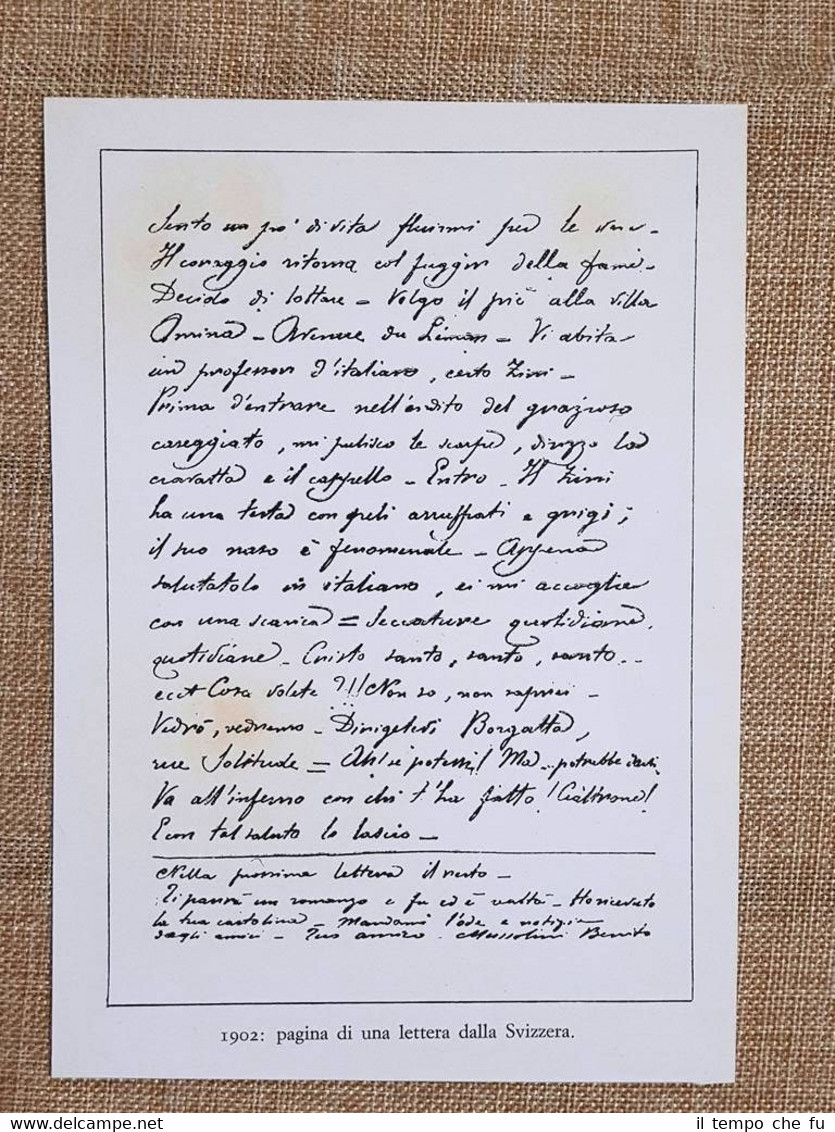 Sento un po' di vita fluirmi per le vene -
Il coraggio ritorna col fuggir della fame -
Decido di lottare - Volgo il piè alla villa
Amina - Avenue du Léman - Vi abita
un professor d'italiano, certo Zini -
Prima d'entrare nell'àndito del grazioso
caseggiato, mi pulisco le scarpe, dirizzo la
cravatta e il cappello - Entro - Il Zini
ha una testa con peli arruffati e grigi;
il suo naso è fenomenale - Appena
salutatolo in italiano, ei mi accoglie
con una scarica = Seccature quotidiane,
quotidiane - Cristo santo, santo, santo...
ecct Cosa volete ?!! Non so, non saprei -
Vedrò, vedremo - Dirigetevi Borgatta,
rue Solitude - Ah! se potessi! Ma... potrebbe darsi.
Va all'inferno con chi t'ha fatto! Cialtrone!
E con tal saluto lo lascio -
Nella prossima lettera il resto -
Ti parrà un romanzo e fu ed è realtà - Ho ricevuto
la tua cartolina - Mandami l'ode e notizie
degli amici - Tuo amico Mussolini Benito
1902: pagina di una lettera dalla Svizzera.
il tempo che fu